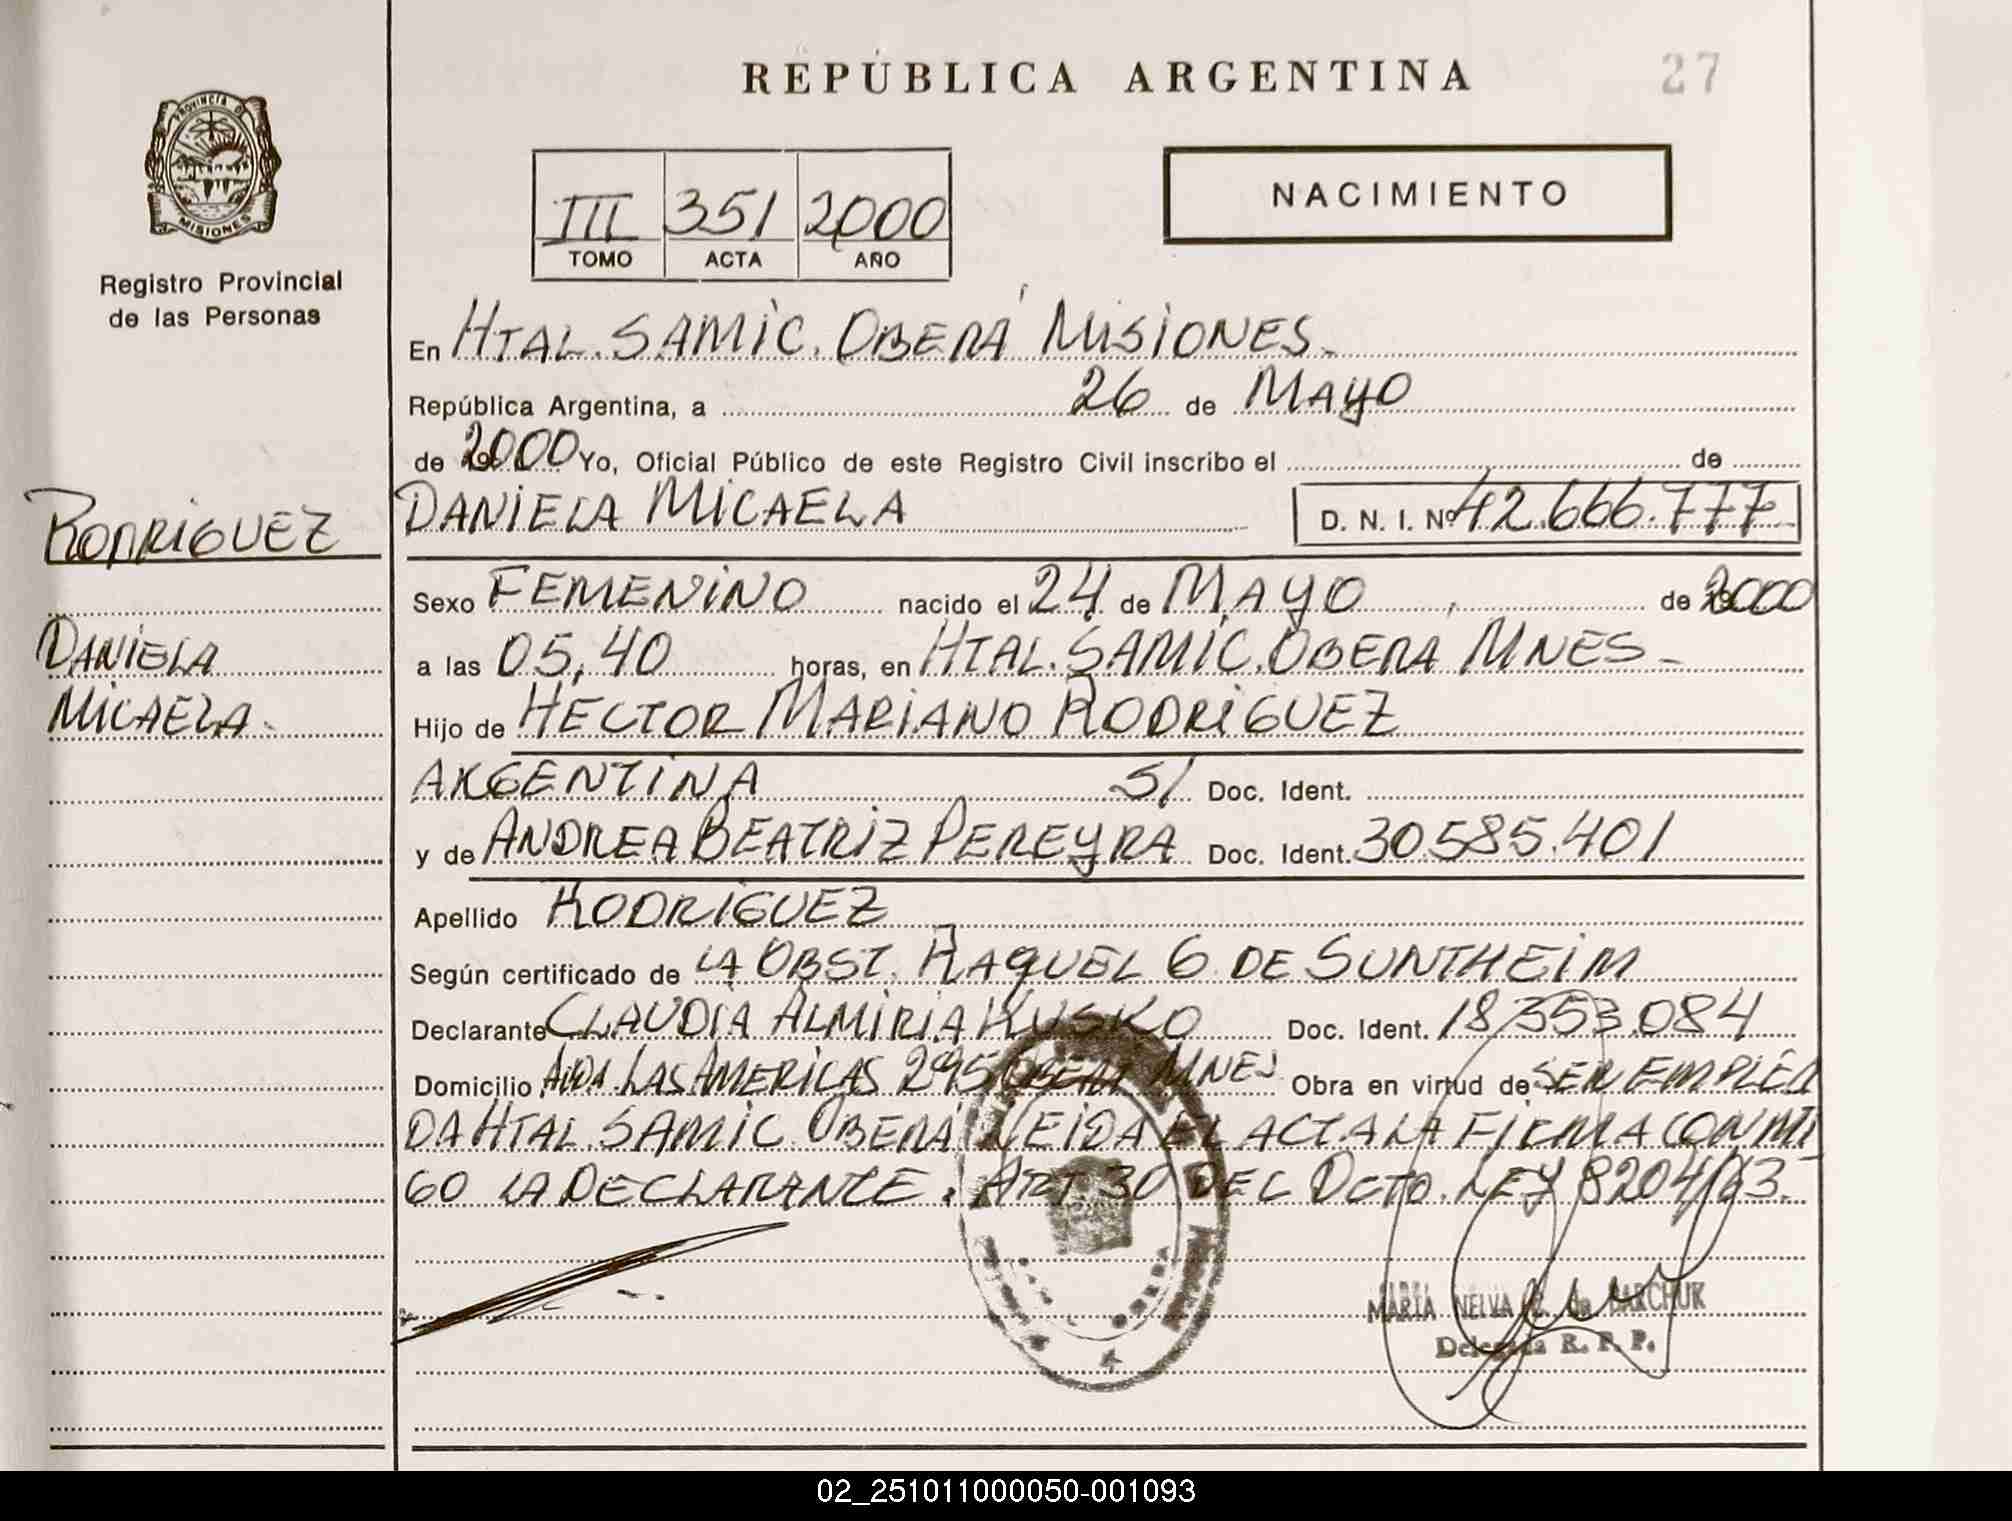 REPÚBLICA ARGENTINA
27
PROVINCIA DE
MISIONES
Registro Provincial
de las Personas
III 351 2000
TOMO ACTA AÑO
NACIMIENTO
En HTAL. SAMIC. OBERÁ MISIONES.
República Argentina, a 26 de MAYO
de 2000 Yo, Oficial Público de este Registro Civil inscribo el de
RODRIGUEZ
DANIELA MICAELA
D. N. I. Nº 42.666.777
Sexo FEMENINO nacido el 24 de MAYO de 2000
DANIELA
a las 05,40 horas, en HTAL. SAMIC. OBERA MNES -
MICAELA.
Hijo de HECTOR MARIANO RODRIGUEZ
ARGENTINA S/ Doc. Ident.
y de ANDREA BEATRIZ PEREYRA Doc. Ident. 30.585.401
Apellido RODRIGUEZ
Según certificado de LA OBST. RAQUEL G DE SUNTHEIM
Declarante CLAUDIA ALMIRIA KUSKO Doc. Ident. 18.353.084
Domicilio AVDA. LAS AMERICAS 295 OBERA MNES Obra en virtud de SER EMPLEA
DA HTAL. SAMIC. OBERÁ LEIDA EL ACTA LA FIRMA CONMI
GO LA DECLARANTE. ART 30 DEL DCTO. LEY 8204/63-
MARIA NELVA de BARCHUK
Delegada R. P. P.
02_251011000050-001093